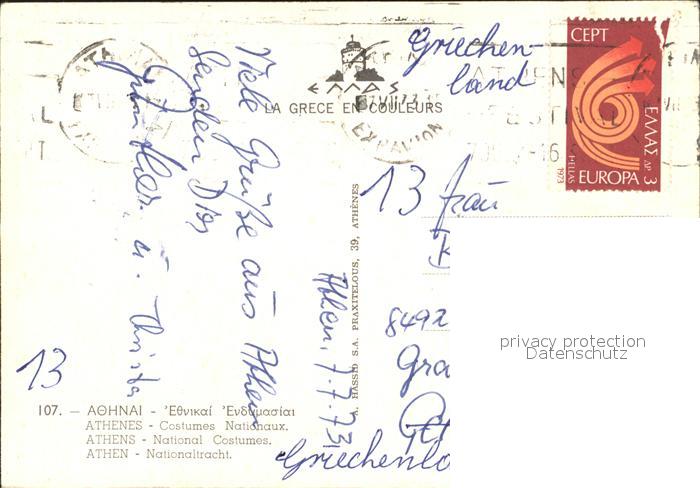 Griechen-
land
CEPT
ΕΛΛΑΣ ΔΡ 3
HELLAS
1973
EUROPA
ΕΛΛΑΣ
LA GRECE EN COULEURS
Viele Grüße aus Athen
senden Dir
Günther u. Christa
Athen, 7.7.73
A. HASSID S.A. PRAXITELOUS, 39, ATHÈNES
13 Frau
8492
Gra
Griechenla
13
107. — ΑΘΗΝΑΙ - Ἐθνικαί Ἐνδυμασίαι
ATHENES - Costumes Nationaux.
ATHENS - National Costumes.
ATHEN - Nationaltracht.
privacy protection
Datenschutz